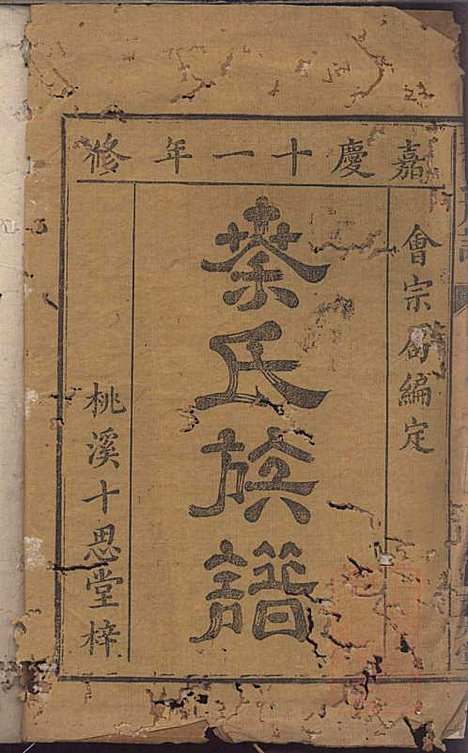 嘉慶十一年修
會宗局編定
秦氏族譜
桃溪十思堂梓